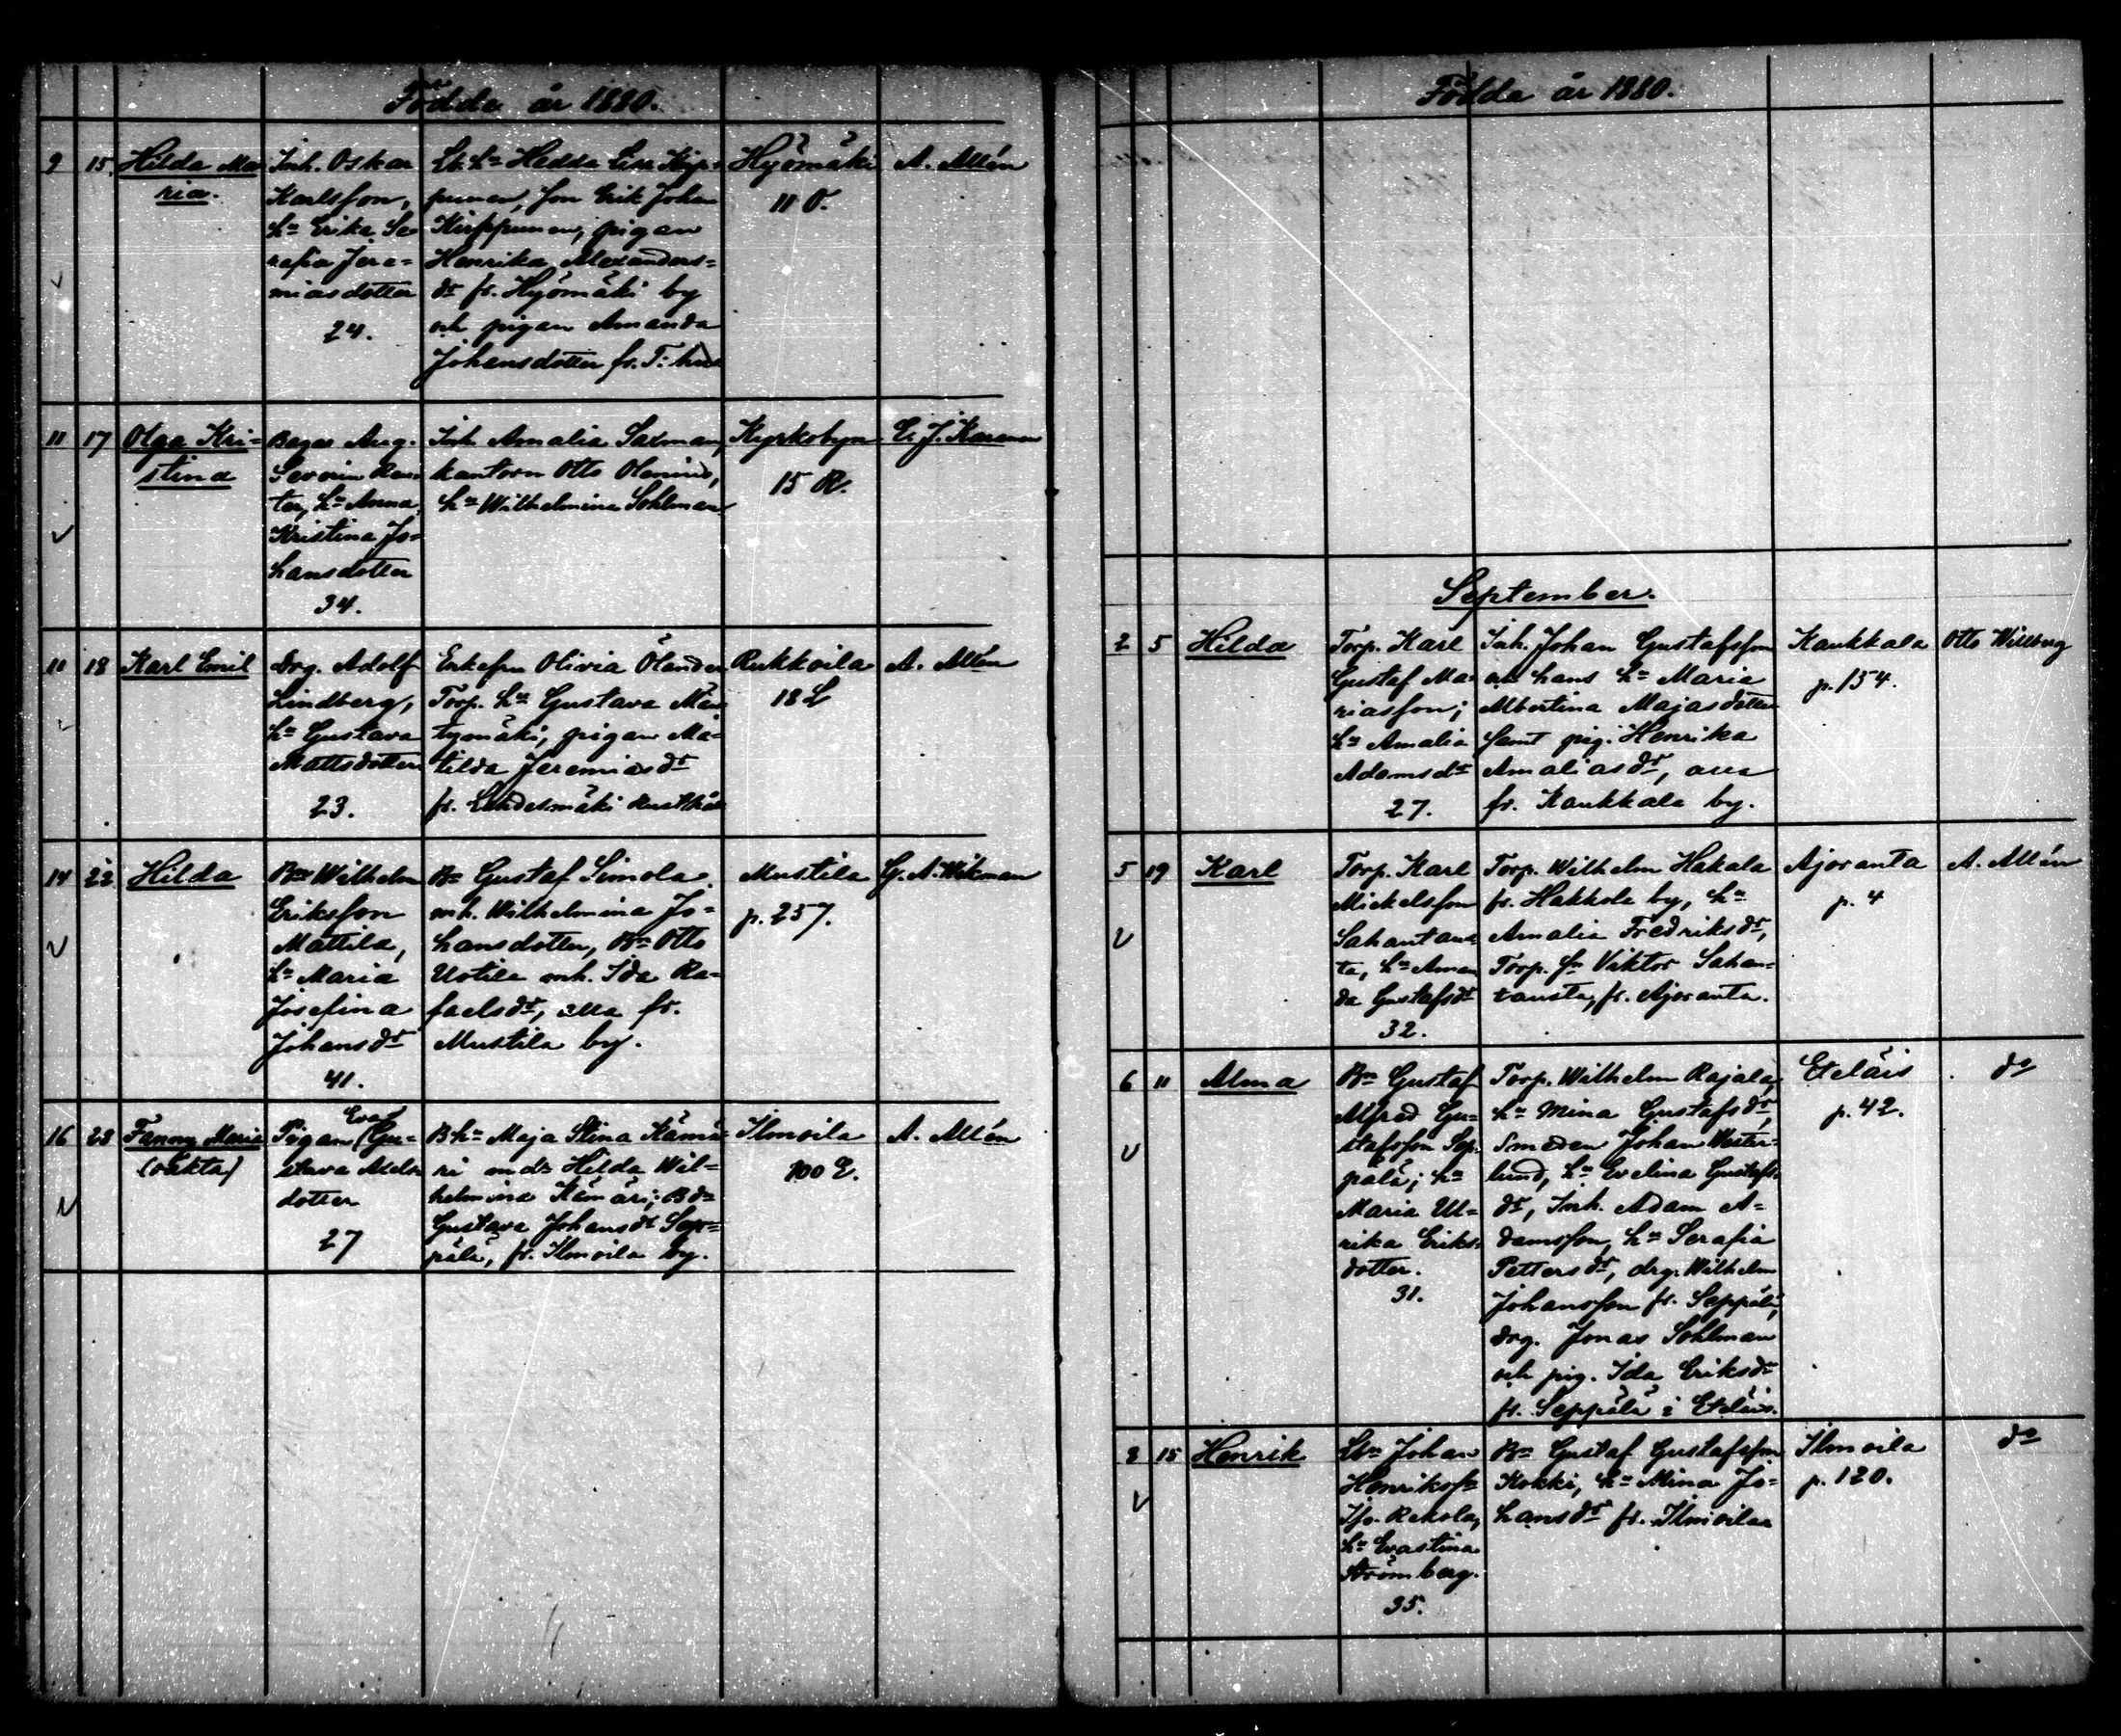 Födde år 1880.
9 15. Hilda Ma
ria.
Inh. Oskar
Karlsson,
hu Erika Se
rafia Jere=
miasdotter
24.
hu Hedda Lisa
, son Erik Johan
Kirppunen, pigan
Henrika Alexanders=
dr fr. Hyömäki by
och pigan Amanda
Johansdotter fr. T: hus
Hyömäki
11 O.
A. Allén
11 17 Olga Kri=
stina
Bagar Aug.
Severin
hu Anna
Kristina Jo=
hansdotter
34.
Inh. Amalia Saxman,
kantorn Otto Olenius,
hu Wilhelmina Sohlman
Kyrkobyn
15 R.
18 Karl Emil
Drg. Adolf
Lindberg,
hu Gustava
Mattsdotter
23.
Enkefru Olivia Ölander
Torp. hu Gustava Män
tymäki, pigan Ma=
tilda Jeremiasdr
fr. rusthåll
Rukkoila
18 L
A. Allén
14 22 Hilda
Bn Wilhelm
Eriksson
Mattila,
hu Maria
Josefina
Johansdr
41.
Bn Gustaf Simola
mh. Wilhelmina Jo=
hansdotter, Bn Otto
Uotila mh. Ida Ra=
faelsdr, alla fr.
Mustila by.
Mustila
p. 257.
G. A. Wikman
16 23 Fanny Maria
(oäkta)
Pigan Eva Gu=
stava
dotter
27
Bhu Maja Stina Kämä=
ri o. dr Hilda Wil=
helmina Kämäri; Bdr
Gustava Johansdr Sep=
pälä, fr. Ilmoila by.
Ilmoila
100 E.
A. Allén
Födda år 1880.
September.
2 5 Hilda
Torp. Karl
Gustaf Ma=
riasson;
hu Amalia
Adamsdr
27.
Inh. Johan Gustafsson
o. hans hu Maria
Albertina Majasdotter
samt pig. Henrika
Amaliasdr, alla
fr. Kaukkala by.
Kaukkala
p. 154.
Otto Willberg
5 19 Karl
Torp. Karl
Mickelsson
Sahantaus=
ta, hu Aman
da Gustafsdr
32.
Torp. Wilhelm Hakala
fr. Hakkola by, hu
Amalia Fredriksdr,
Torp. sn Viktor Sahan=
tausta, fr. Ajoranta.
Ajoranta
p. 4
A. Allén
6 11 Alma
Bn Gustaf
Alfred Gu=
stafsson Sep=
pälä; hu
Maria Ul=
rika Eriks=
dotter.
31.
Torp. Wilhelm Rajala,
hu Mina Gustafsdr,
Smeden Johan Wester=
lund, hu Evelina Gustafs
dr, Inh. Adam A=
damsson, hu Serafia
Pettersdr, drg. Wilhelm
Johansson fr. Seppälä,
drg. Jonas Sohlman
och pig. Ida Eriksdr
fr. Seppälä i Eteläis.
Eteläis
p. 42.
do
8 15 Henrik
Johan
Henrikss
Iso-Rekola,
hu Evastina
Strömberg.
35.
Bn Gustaf Gustafsson
Kokki, hu Mina Jo=
hansdr fr. Ilmoila
Ilmoila
p. 120.
do